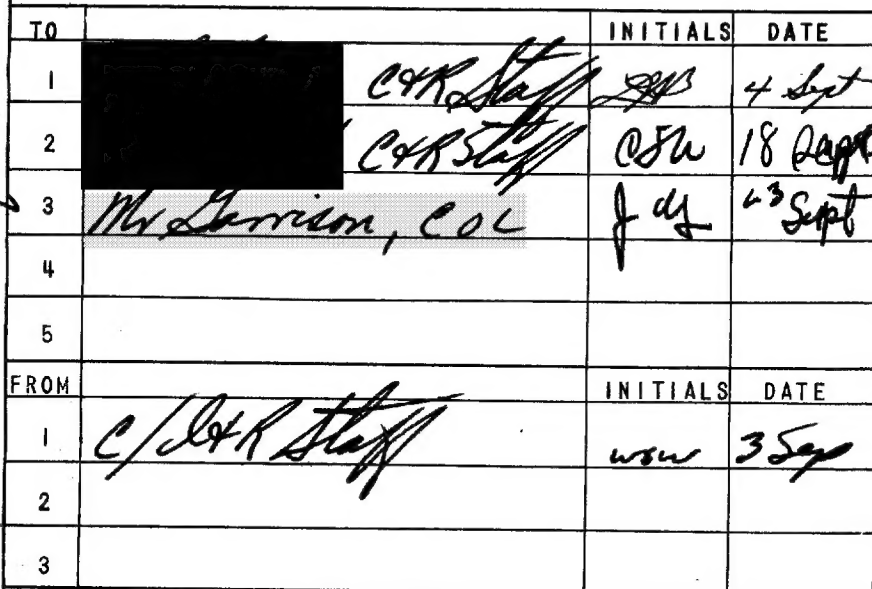 TO INITIALS DATE
1 C&R Staff 4 Sept
2 C&R Staff 18 Sept
3 Mr Garrison, COL 23 Sept
4
5
FROM INITIALS DATE
1 C/I&R Staff wsw 3 Sep
2
3